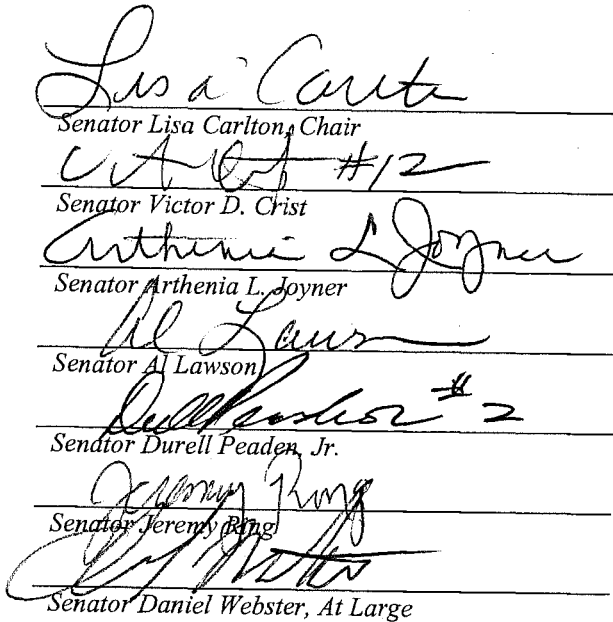 Lisa Carlton
Senator Lisa Carlton, Chair
#12
Senator Victor D. Crist
Arthenia L Joyner
Senator Arthenia L. Joyner
Al Lawson
Senator Al Lawson
Durell Peaden #2
Senator Durell Peaden, Jr.
Jeremy Ring
Senator Jeremy Ring
Senator Daniel Webster, At Large